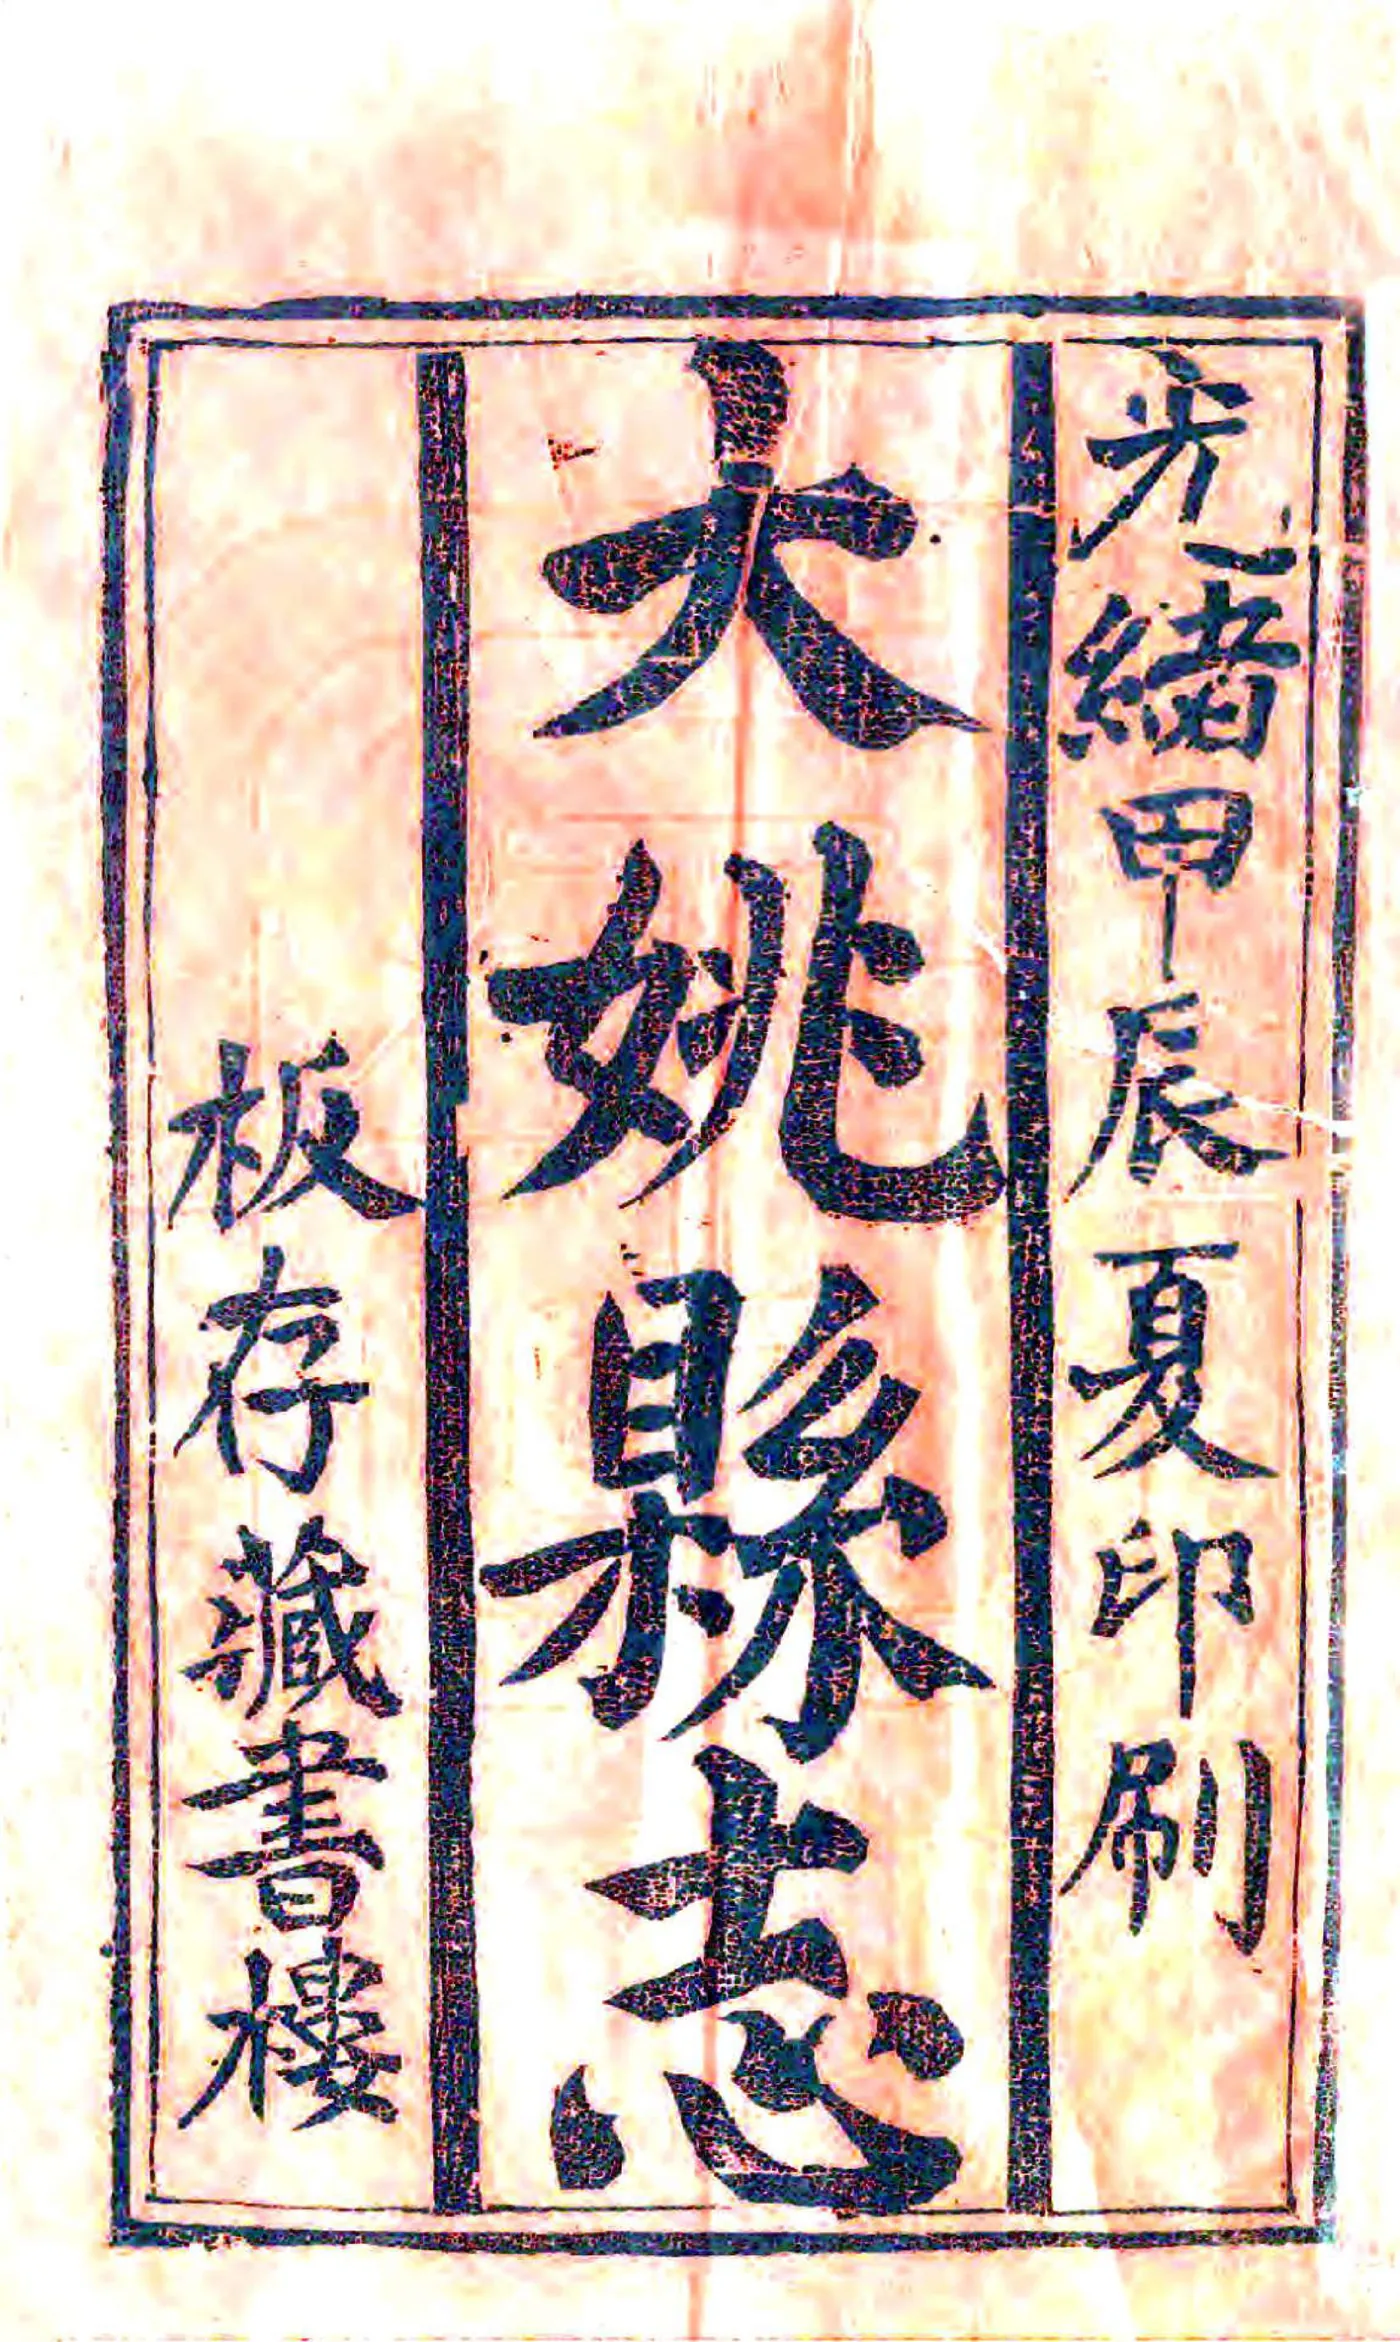 光緒甲辰夏印刷
大姚縣志
板存藏書樓